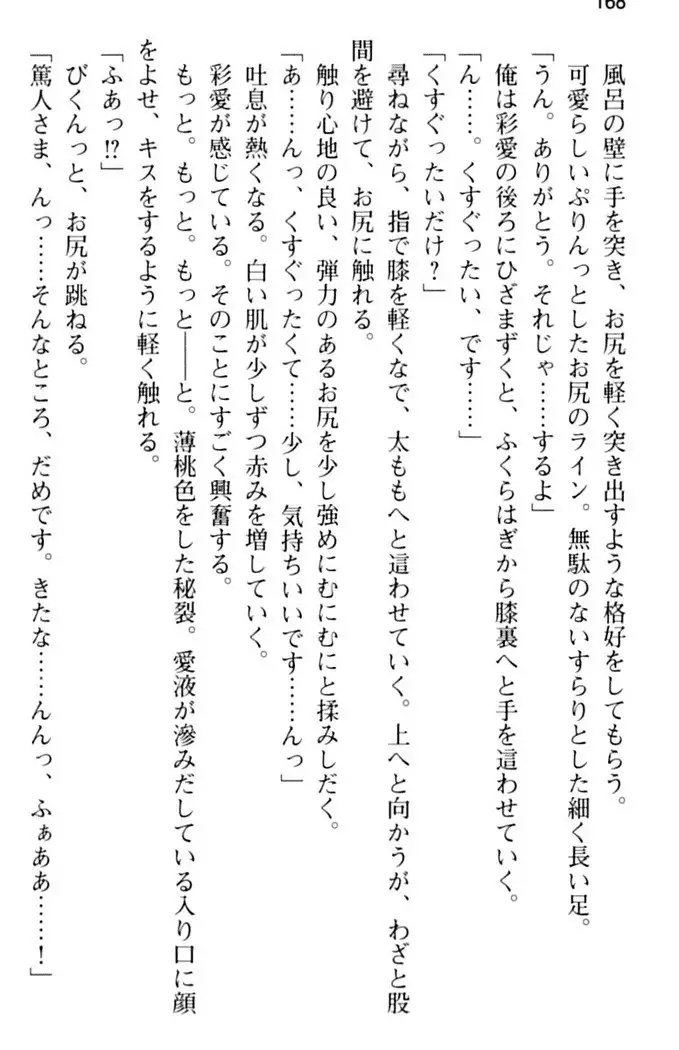 168
風呂の壁に手を突き、お尻を軽く突き出すような格好をしてもらう。
可愛らしいぷりんっとしたお尻のライン。無駄のないすらりとした細く長い足。
「うん。ありがとう。それじゃ……するよ」
俺は彩愛の後ろにひざまずくと、ふくらはぎから膝裏へと手を這わせていく。
「ん……。くすぐったい、です……」
「くすぐったいだけ？」
尋ねながら、指で膝を軽くなで、太ももへと這わせていく。上へと向かうが、わざと股
間を避けて、お尻に触れる。
触り心地の良い、弾力のあるお尻を少し強めにむにむにと揉みしだく。
「あ……んっ、くすぐったくて……少し、気持ちいいです……んっ」
吐息が熱くなる。白い肌が少しずつ赤みを増していく。
彩愛が感じている。そのことにすごく興奮する。
もっと。もっと。もっと――と。薄桃色をした秘裂。愛液が滲みだしている入り口に顔
をよせ、キスをするように軽く触れる。
「ふあっ!?」
びくんっと、お尻が跳ねる。
「篤人さま、んっ……そんなところ、だめです。きたな……んんっ、ふぁああ……！」